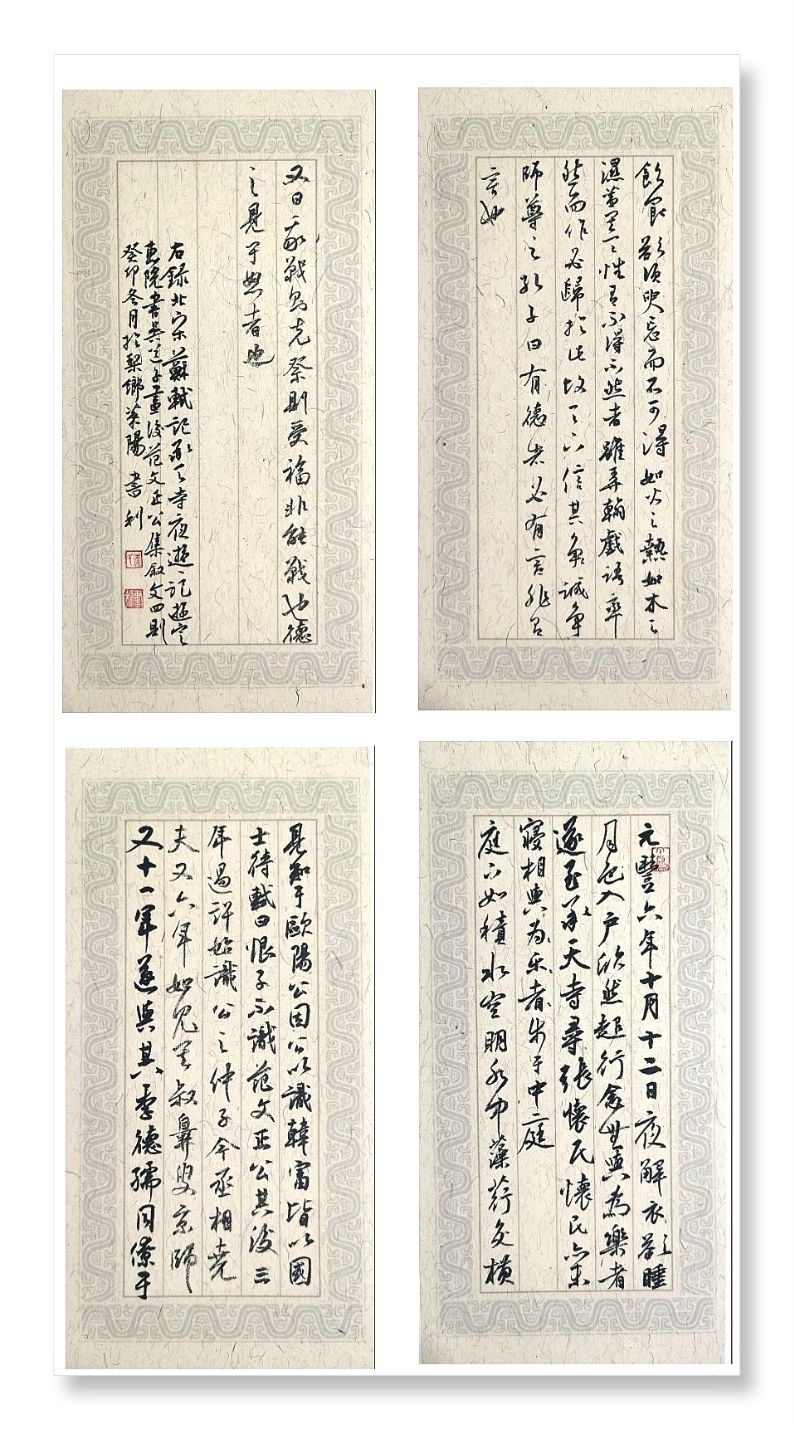 飲食欲須臾忘而不可得如火之熱如水之
濕蓋其天性有不得不然者雖弄翰戲語率
然而作必歸於此故天下信其争誠争
師尊之孔子曰有德者必有言非有
言也
又曰我戰則克祭則受福非能戰也德
之見于怒者也
右錄北宋蘇軾記承天寺夜遊記遊定
惠院書吳道子畫後范文正公集叙文四則
癸卯冬月於梨鄉萊陽書利
元豐六年十月十二日夜解衣欲睡
月色入户欣然起行念無與為樂者
遂至承天寺尋張懷民懷民亦未
寢相與為樂者步于中庭
庭下如積水空明水中藻荇交横
見知于歐陽公因公以識韓富皆以國
士待軾曰恨子不識范文正公其後三
年過許始識公之仲子今丞相堯
夫又六年始見其叔彝叟京師
又十一年遂與其季德孺同僚于